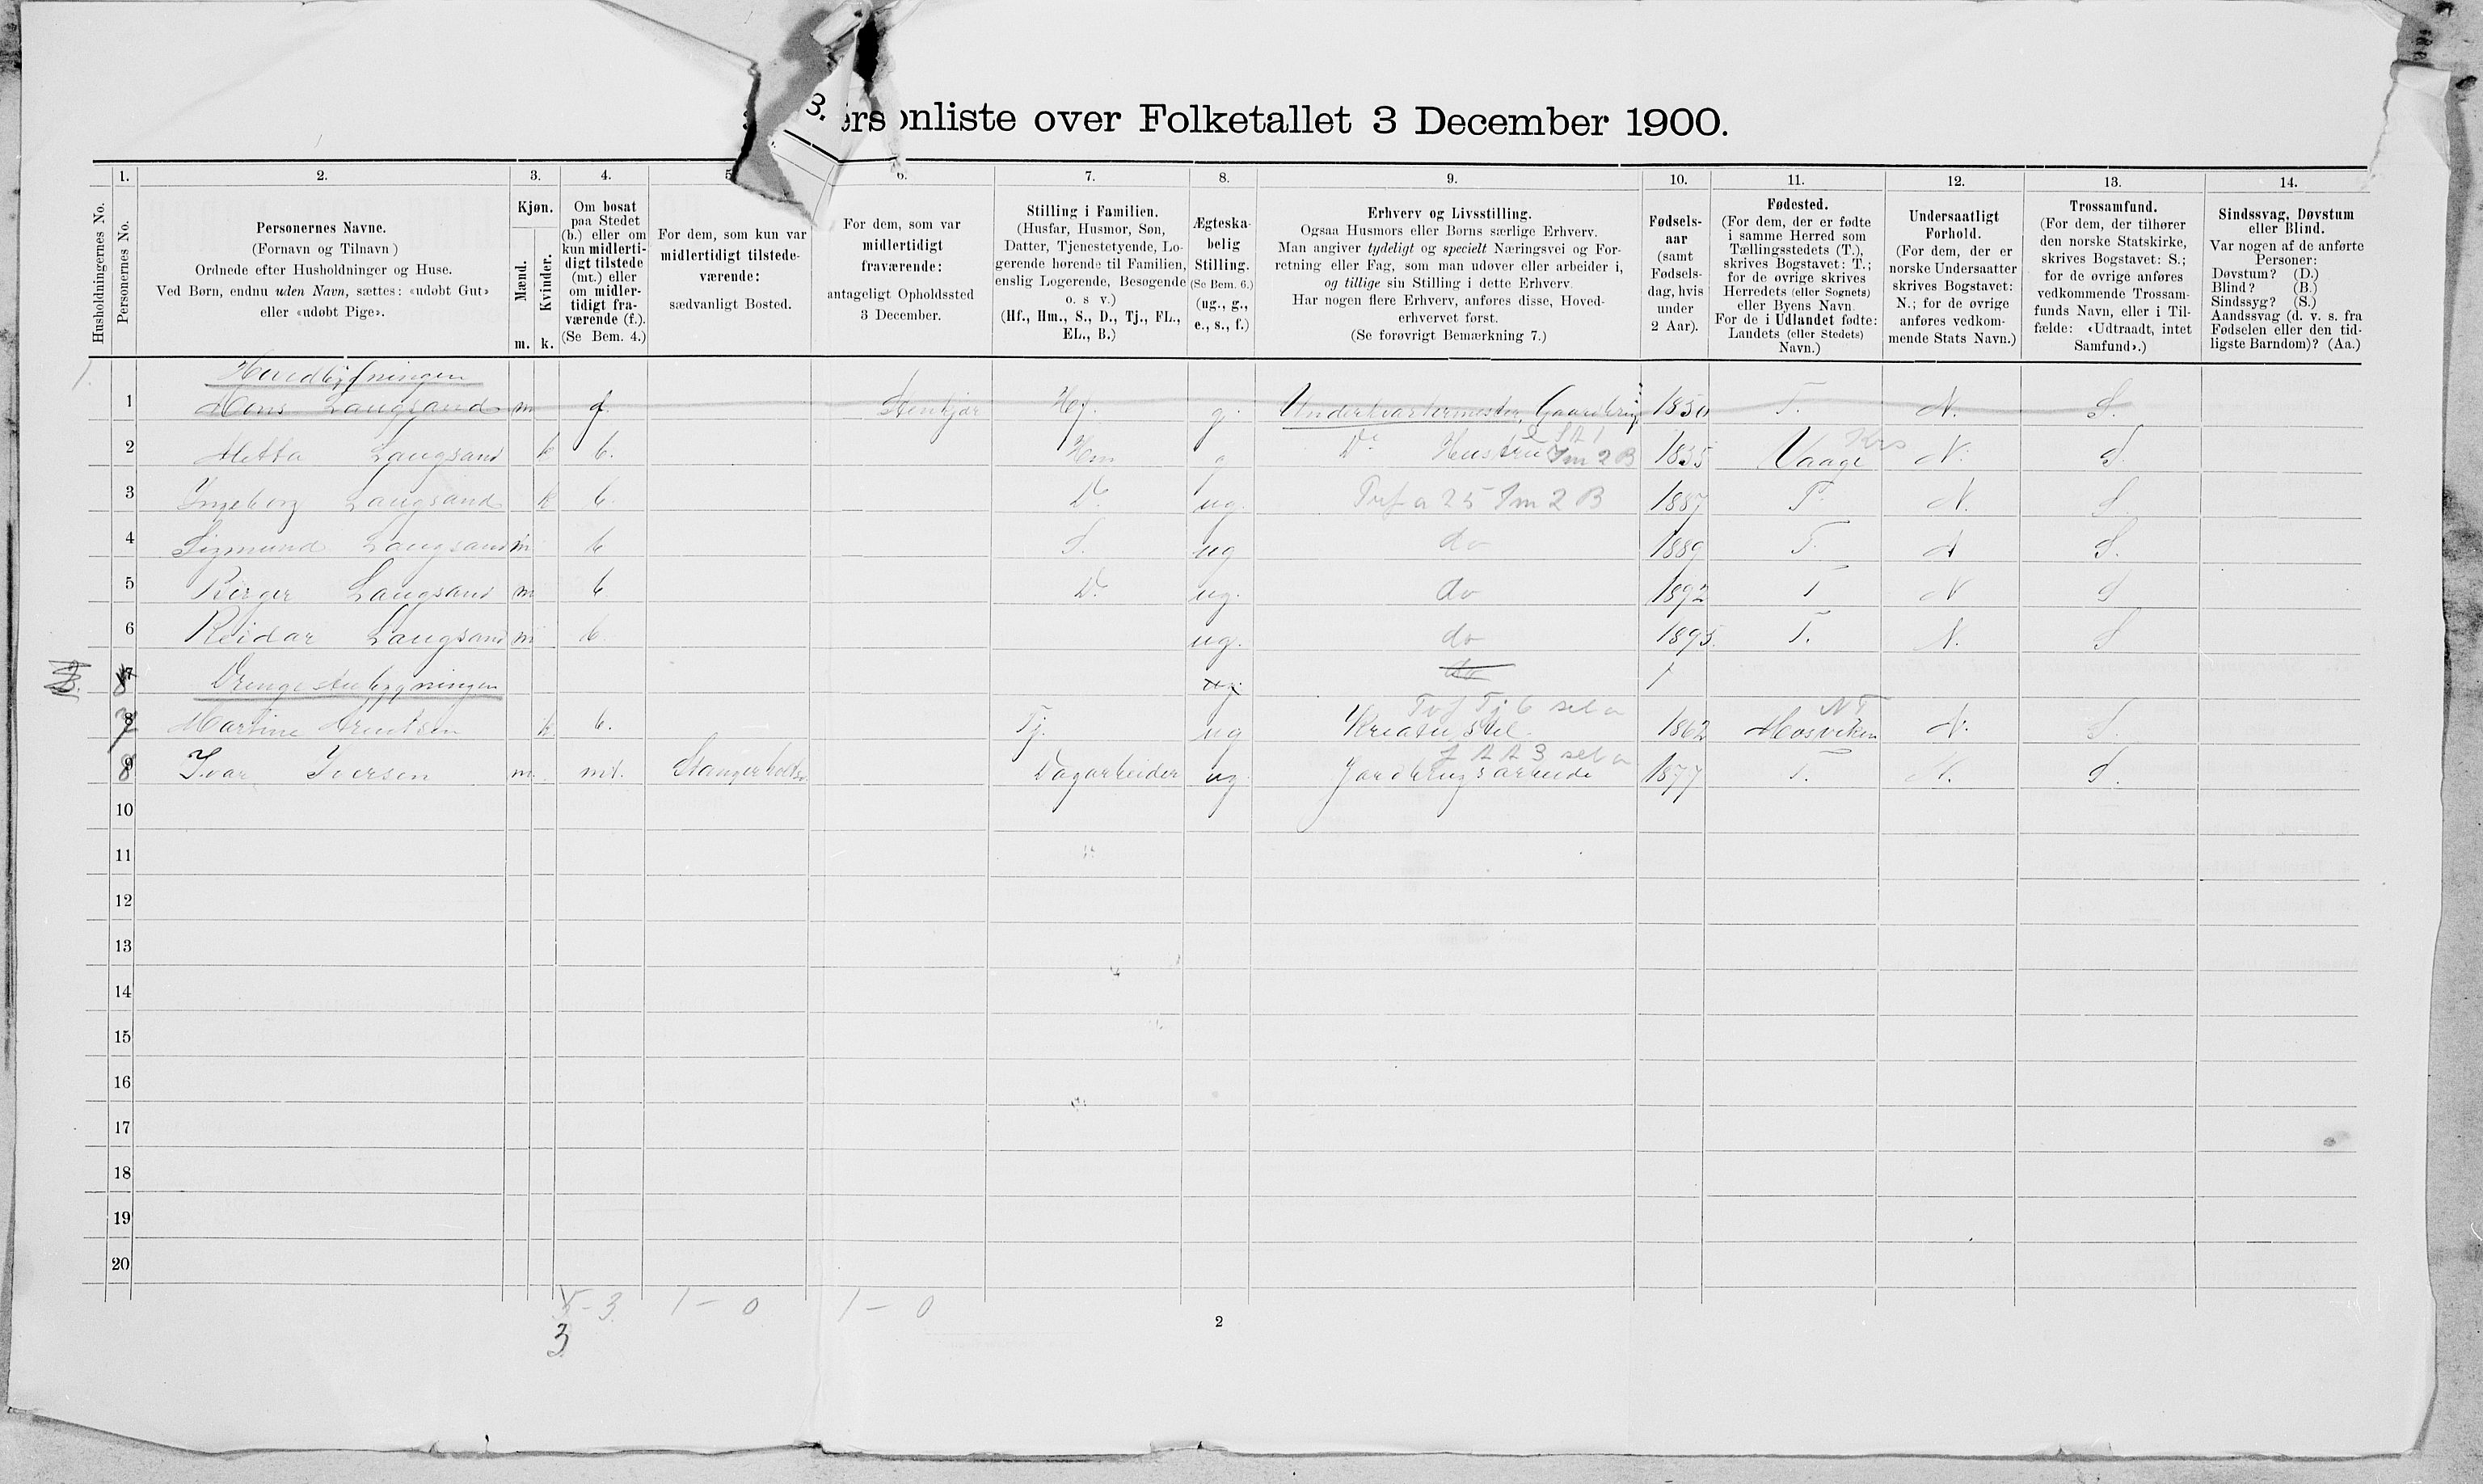 3.
ersonliste over Folketallet 3 December 1900.
Husholdningernes No.
1.
Personernes No.
2.
Personernes Navne.
(Fornavn og Tilnavn)
Ordnede efter Husholdninger og Huse.
Ved Børn, endnu uden Navn, sættes: «udøbt Gut»
eller «udøbt Pige».
3.
Kjøn.
Mænd.
Kvinder.
m. k.
4.
Om bosat
paa Stedet
(b.) eller om
kun midlerti-
digt tilstede
(mt.) eller
om midler-
tidigt fra-
værende (f.).
(Se Bem. 4.)
5
For dem, som kun var
midlertidigt tilstede-
værende:
sædvanligt Bosted.
6.
For dem, som var
midlertidigt
fraværende:
antageligt Opholdssted
3 December.
7.
Stilling i Familien.
(Husfar, Husmor, Søn,
Datter, Tjenestetyende, Lo-
gerende hørende til Familien,
enslig Logerende, Besøgende
o. s v.)
(Hf., Hm., S., D., Tj., FL.,
EL., B.)
8.
Ægteska-
belig
Stilling.
(Se Bem. 6.)
(ug., g.,
e., s., f.)
9.
Erhverv og Livsstilling.
Ogsaa Husmors eller Børns særlige Erhverv.
Man angiver tydeligt og specielt Næringsvei og For-
retning eller Fag, som man udøver eller arbeider i,
og tillige sin Stilling i dette Erhverv.
Har nogen flere Erhverv, anføres disse, Hoved-
erhvervet først.
(Se forøvrigt Bemærkning 7.)
10.
Fødsels-
aar
(samt
Fødsels-
dag, hvis
under
2 Aar).
11.
Fødested.
(For dem, der er fødte
i samme Herred som
Tællingsstedets (T.),
skrives Bogstavet: T.;
for de øvrige skrives
Herredets (eller Sognets)
eller Byens Navn.
For de i Udlandet fødte:
Landets (eller Stedets)
Navn.)
12.
Undersaatligt
Forhold.
(For dem, der er
norske Undersaatter
skrives Bogstavet:
N.; for de øvrige
anføres vedkom-
mende Stats Navn.)
13.
Trossamfund.
(For dem, der tilhører
den norske Statskirke,
skrives Bogstavet: S.;
for de øvrige anføres
vedkommende Trossam-
funds Navn, eller i Til-
fælde: «Udtraadt, intet
Samfund».)
14.
Sindssvag, Døvstum
eller Blind.
Var nogen af de anførte
Personer:
Døvstum? (D.)
Blind? (B.)
Sindssyg? (S.)
Aandssvag (d. v. s. fra
Fødselen eller den tid-
ligste Barndom)? (Aa.)
1. Hovedbygningen
1 Hans Langsand m f. Stenkjær Hf. g. Underkvartermester, Gaardbrug 1850 T. N. S.
2 Metta Langsand k b. Hm g Do Hustru Sm 2 B 1855 Vaage N. S.
3 Ingeborg Langsand k b. D. ug. 25 Sm 2 B 1887 T. N. S.
4 Sigmund Langsand m b S. ug do 1889 T. N S.
5 Birger Langsand m b Do ug. do 1892 T N S
6 Reidar Langsand m b ug. do 1895. T. N. S
7 Drengestubygningen ug. do
8 7 Martine Arentsen k b. Tj. ug Kreaturstel. 1862 Mosviken N. S.
NT
9 8 Ivar Iversen m. mt. Dagarbeider ug. Jordbrugsarbeide 1877 T. N. S.
10
11
12
13
14
15
16
17
18
19
20
5-3 1-0 1-0
3
2